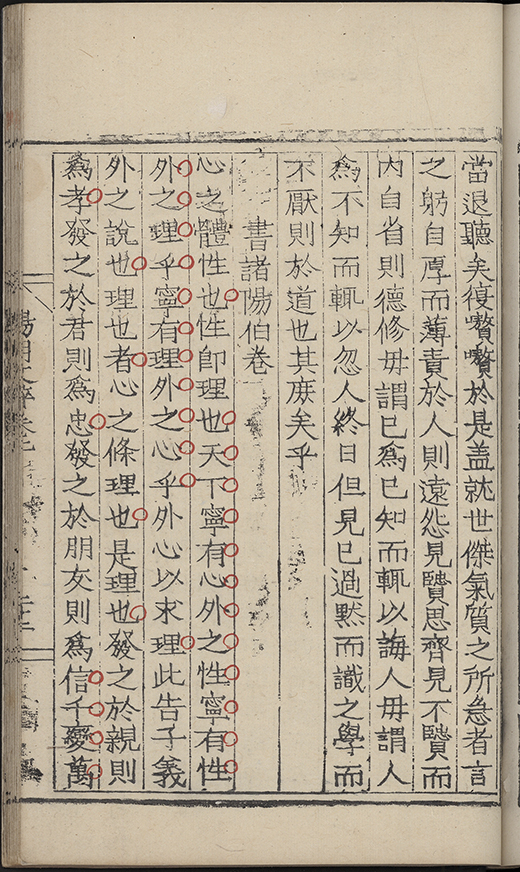 當退聽矣復嚌嚌於是盖就世傑氣質之所急者言
之躬自厚而薄責於人則遠怨見賢思齊見不賢而
內自省則德修毋謂已為已知而輒以誨人毋謂人
為不知而輒以忽人終日但見已過黙而識之學而
不厭則於道也其庻矣乎
書諸陽伯卷
心之體性也性卽理也天下寧有心外之性寧有性
外之理乎寧有理外之心乎外心以求理此告子義
外之說也理也者心之條理也是理也發之於親則
為孝發之於君則為忠發之於朋友則為信千變萬